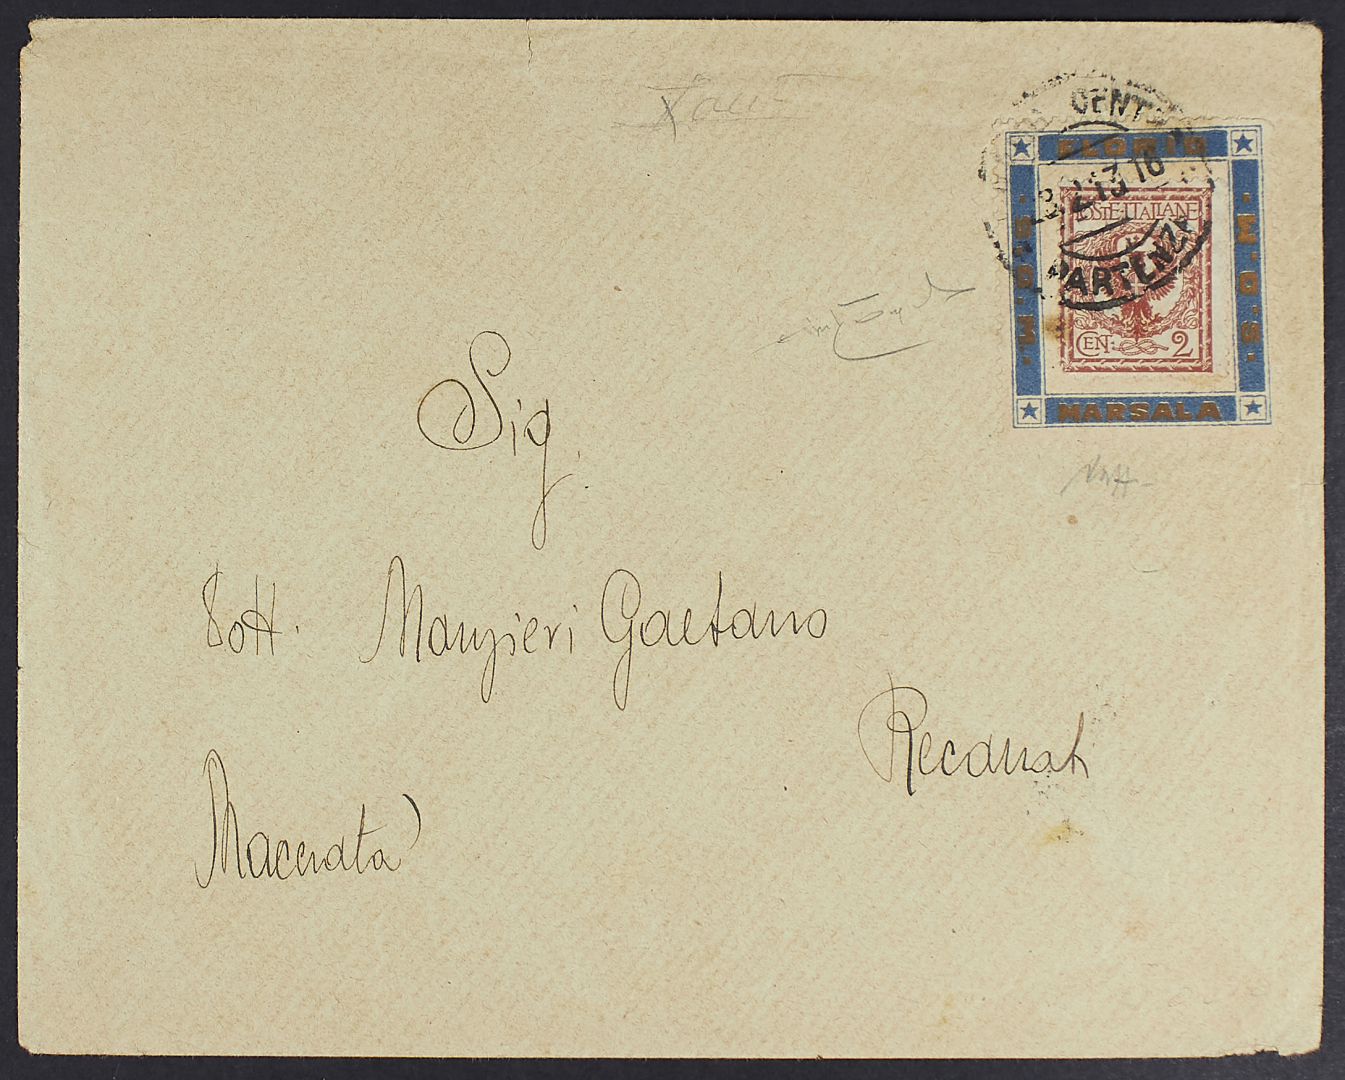 CENT
PARTENZA
FLORIO
S.O.M.
S.O.M.
MARSALA
POSTE·ITALIANE
CEN: 2
Sig.
Dott. Manzieri Gaetano
Recanati
Macerata